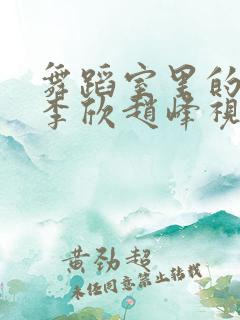 舞蹈室里的
李欣趙峰視
黄劲超
未任同意禁止转载